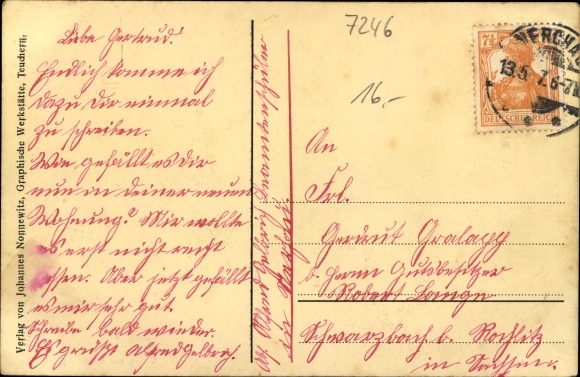 Liebe Gertrud!
Endlich komme ich
dazu Dir einmal
zu schreiben.
Wie gefällt es dir
nun in deiner neuen
Wohnung? Mir wollte
es erst nicht recht
Aber jetzt gefällt
es mir sehr gut.
Schreibe bald wieder.
Es grüßt Alfred
Verlag von Johannes Nonnewitz, Graphische Werkstätte, Teuchern.
Abs.
in
7246
16,-
7½
DEUTSCHES REICH
NERCHAU
13.5.17. 6-7
An
Frl.
Gertrud Gralapp
b. Herrn Gutsbesitzer
Robert Lange
Schwarzbach b. Rochlitz
in Sachsen.